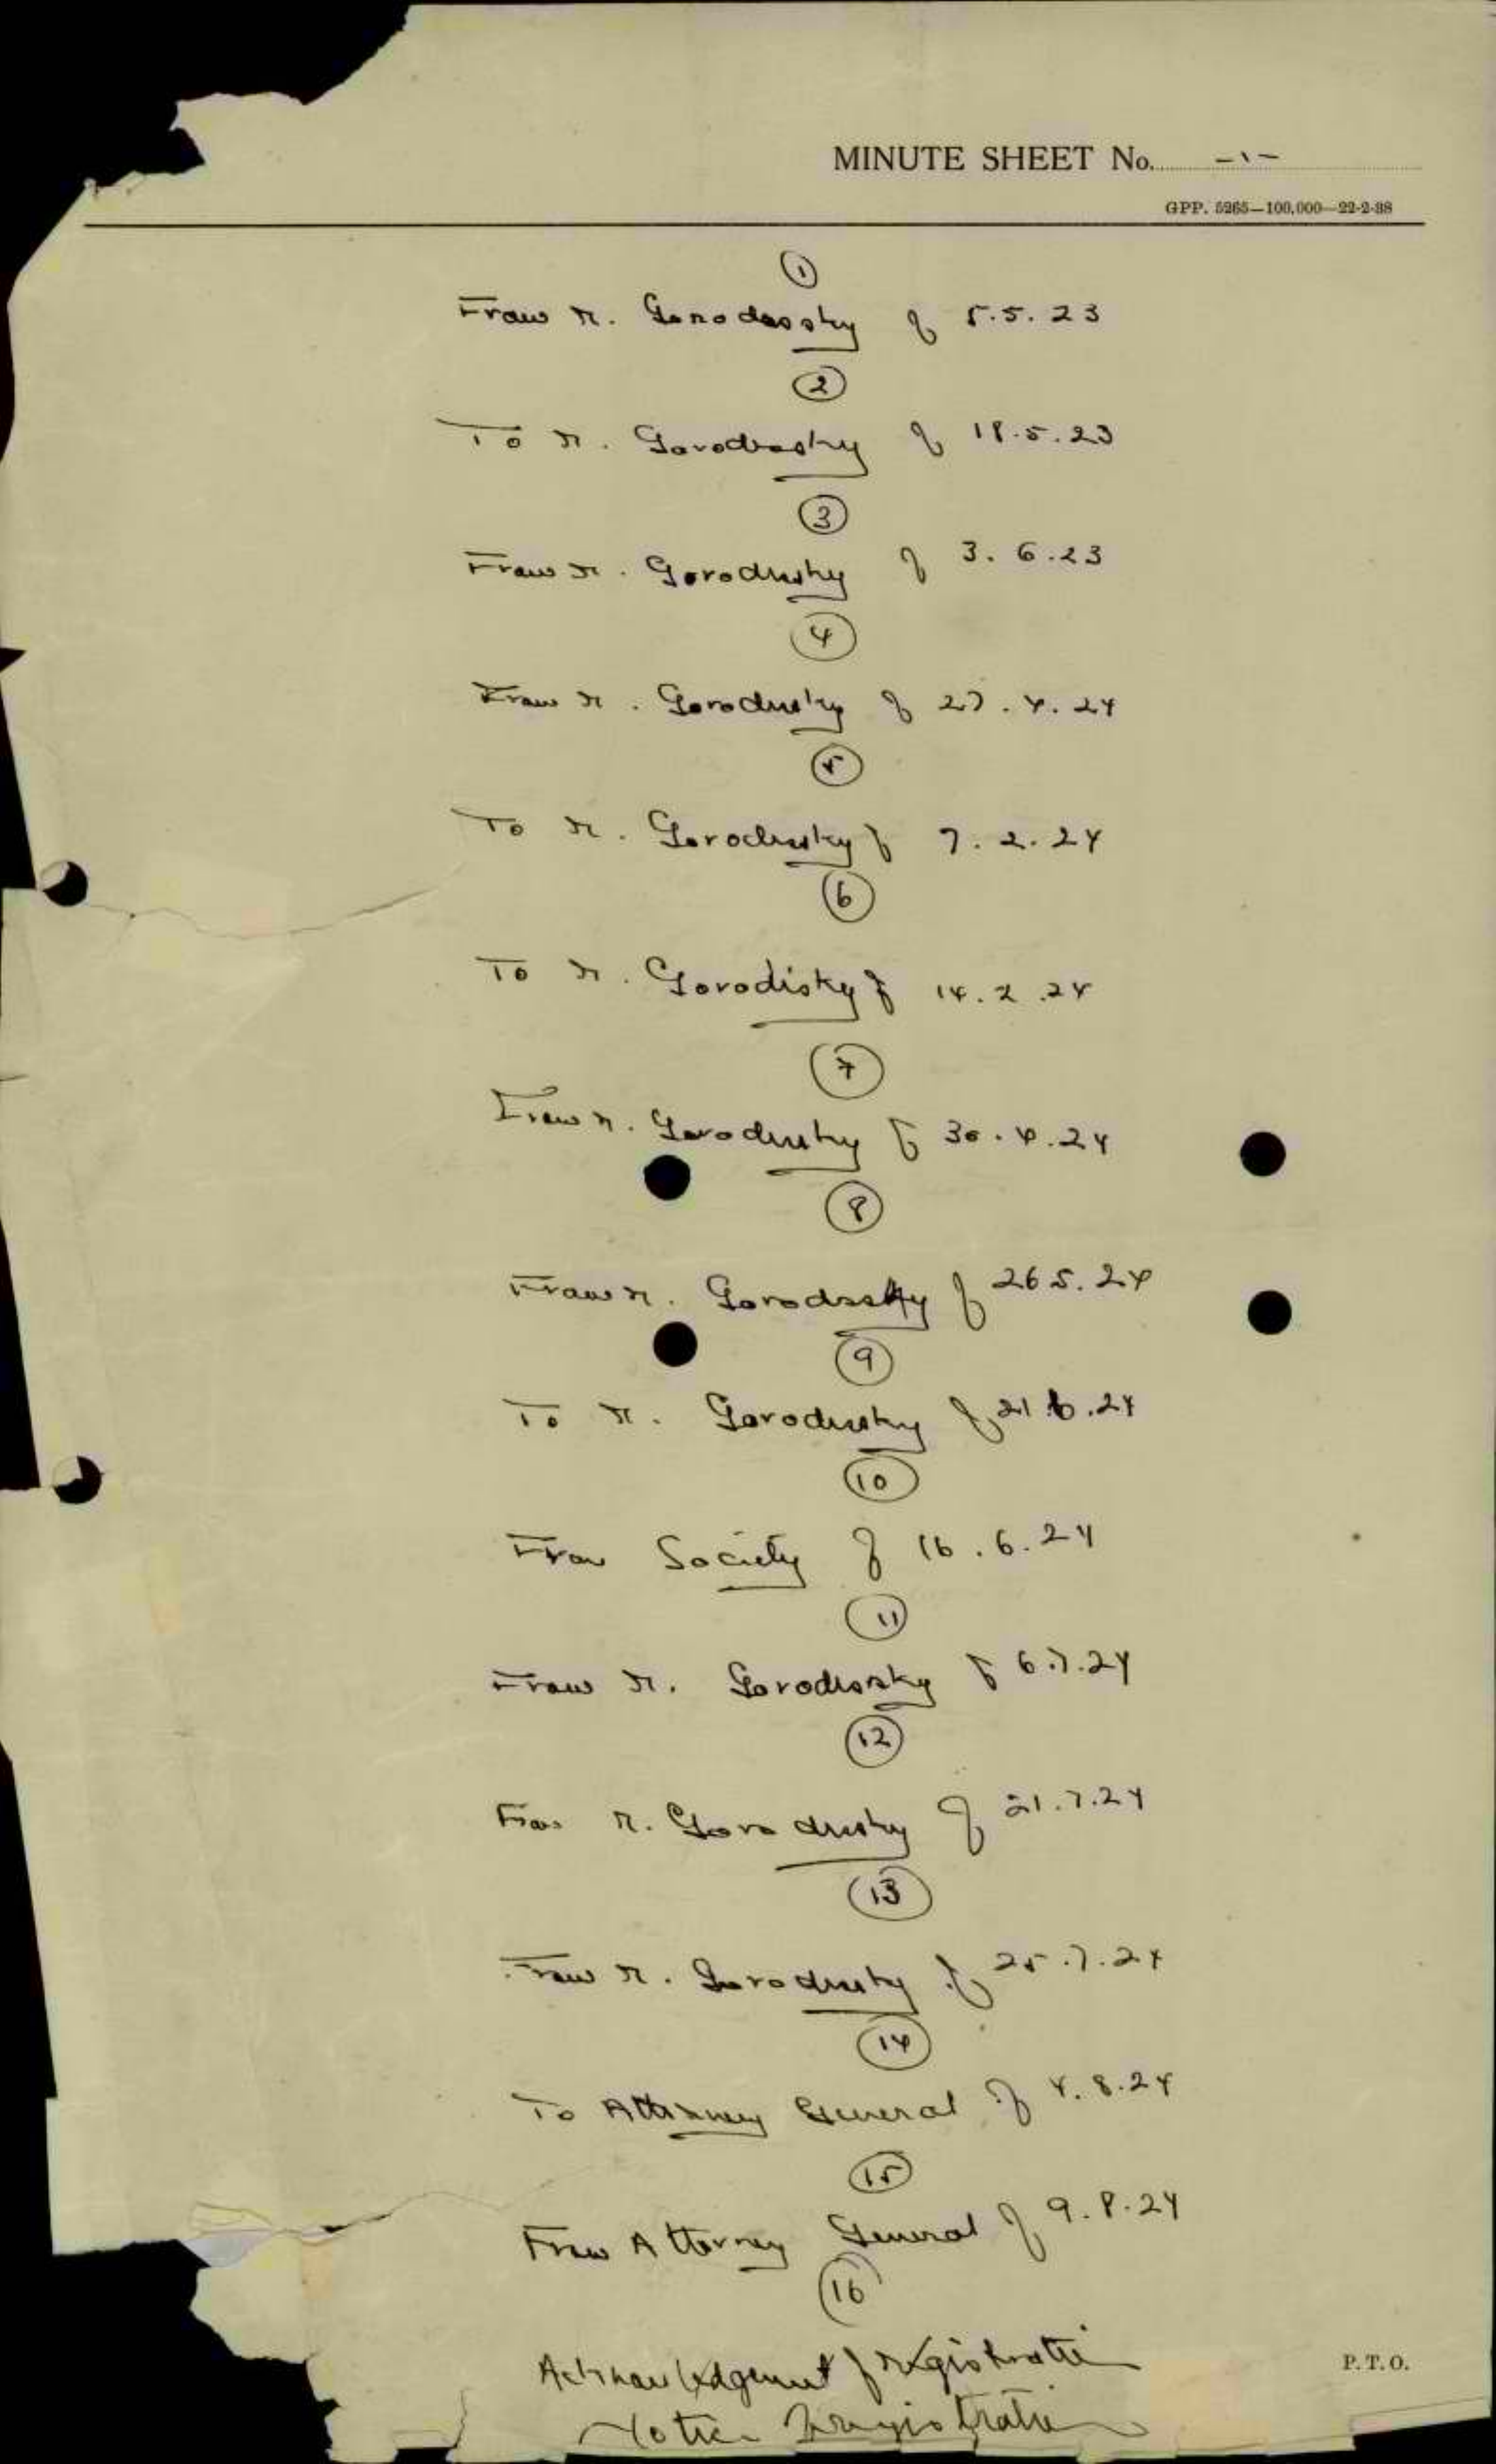 MINUTE SHEET No. -1-
GPP. 5265—100,000—22-2-38
1
From M. Gorodessky of 5.5.23
2
To M. Gorodessky of 18.5.23
3
From M. Gorodissky of 3.6.23
4
From M. Gorodissky of 27.4.24
5
To M. Gorodissky of 7.2.24
6
To M. Gorodisky of 14.2.24
7
From M. Gorodissky of 30.4.24
8
From M. Gorodssky of 26 5.24
9
To M. Gorodissky of 21.6.24
10
From Society of 16.6.24
11
From M. Gorodissky of 6.7.24
12
From M. Gorodissky of 21.7.24
13
From M. Gorodissky of 25.7.24
14
To Attorney General of 4.8.24
15
From Attorney General of 9.8.24
16
Acknowledgement of registration
Notice of registration
P.T.O.